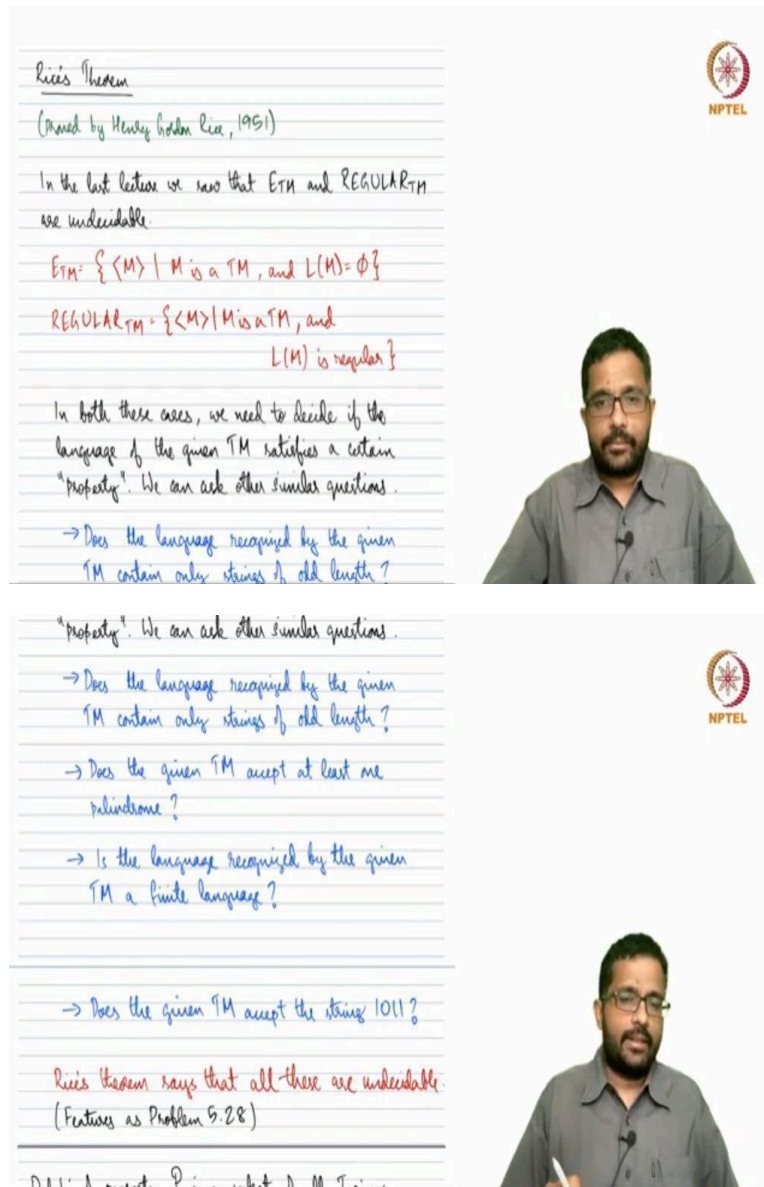 Rice's Theorem
NPTEL
(Proved by Henry Gordon Rice, 1951)
In the last lecture we saw that E_TM and REGULAR_TM
are undecidable.
E_TM = { <M> | M is a TM, and L(M) = ∅ }
REGULAR_TM = { <M> | M is a TM, and
L(M) is regular }
In both these cases, we need to decide if the
language of the given TM satisfies a certain
"property". We can ask other similar questions.
→ Does the language recognized by the given
TM contain only strings of odd length?
"property". We can ask other similar questions.
→ Does the language recognized by the given
TM contain only strings of odd length?
NPTEL
→ Does the given TM accept at least one
palindrome?
→ Is the language recognized by the given
TM a finite language?
→ Does the given TM accept the string 1011?
Rice's theorem says that all these are undecidable.
(Features as Problem 5.28)